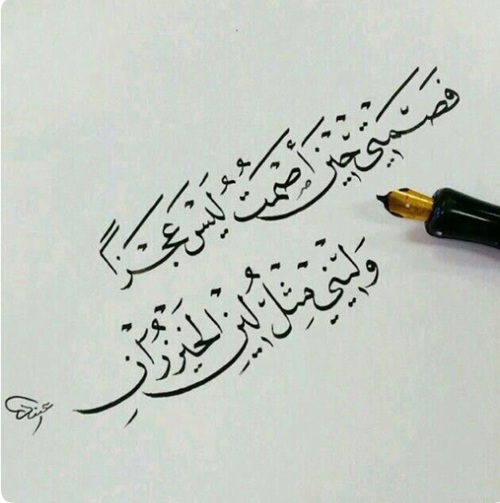 فَصَمْتِي حِيْنَ أَصْمُتُ لَيْسَ عَجْزَاً
وَلِيْنِي مِثْلُ لِيْنِ الْخَيْزُرَانِ